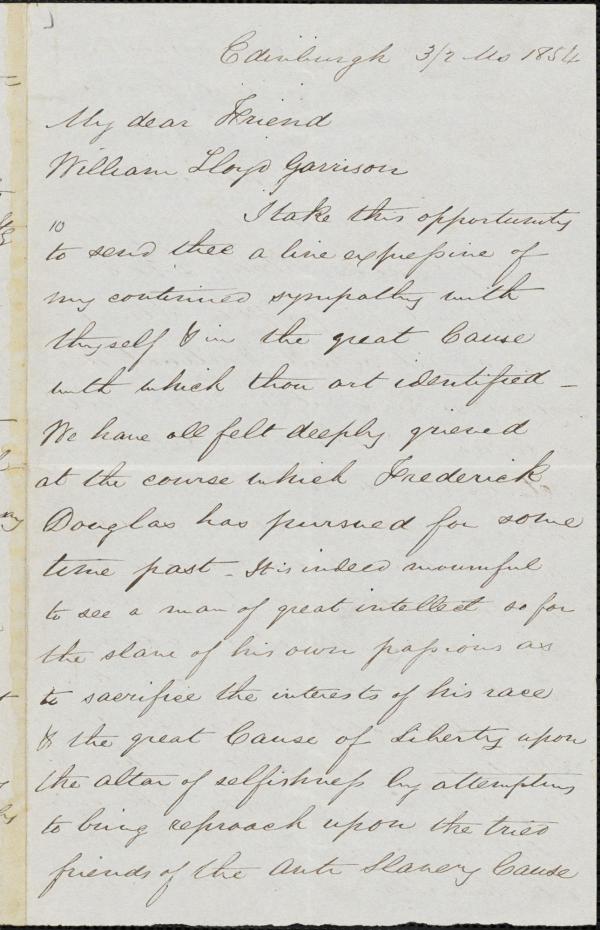 Edinburgh 3/2 Mo 1854
My dear Friend
William Lloyd Garrison
I take this opportunity
10
to send thee a line expressive of
my continued sympathy with
thyself & in the great Cause
with which thou art identified -
We have all felt deeply grieved
at the course which Frederick
Douglas has pursued for some
time past - It is indeed mournful
to see a man of great intellect so far
the slave of his own passions as
to sacrifice the interests of his race
& the great Cause of Liberty upon
the altar of selfishness by attempting
to bring reproach upon the tried
friends of the Anti Slavery Cause